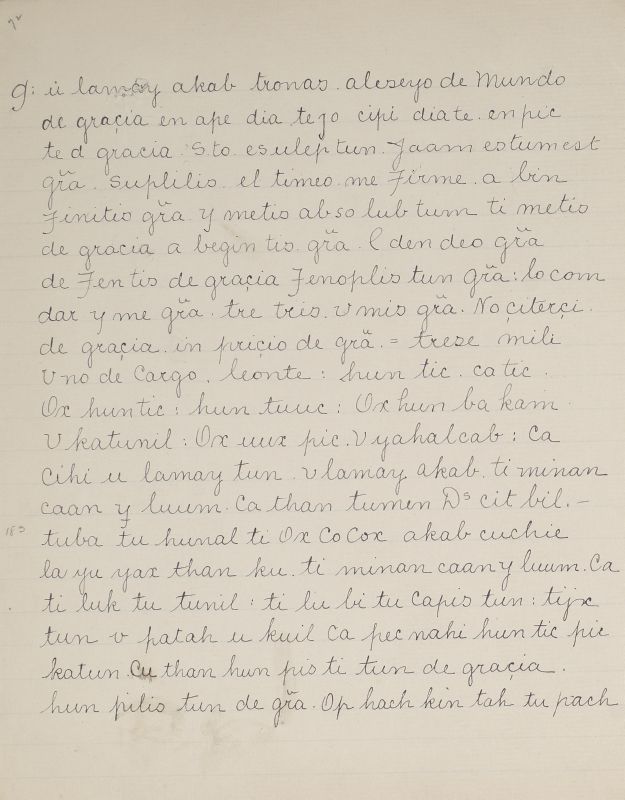 9: ú lamay akab tronas. aleseyo de Mundo
de graçia en ape dia tejo cipi diate. en pic
te d gracia. Sto. esuleptun. Jaam estumest
gr̃a. Suplilio. el timeo. me Firme. a bin
Finitis gr̃a. y metis abso lub tum ti metis
de gracia a begin tis. gr̃a. l den deo gr̃a
de Fentis de graçia Fenoplis tun gr̃a: lo com
dar y me gr̃a. tre tris. v mis gr̃a. No çiterçi.
de graçia. in priçio de gr̃a. = trese mili
Uno de Cargo. leonte: hun tic. ca tic.
Ox hun tic: hun tuuc: Ox hun ba kam
U katunil: Ox uux pic. V yahalcab: Ca
Cihi u lamay tun. v lamay akab. ti minan
caan y luum. Ca than tumen Dˢ cit bil. –
tuba tu hunal ti Ox Co Cox akab cuchie
la yu yax than ku. ti minan caan y luum. Ca
ti luk tu tunil: ti lu bi tu Capis tun: tijx
tun v patah u kuil Ca pec nahi hun tic pic
katun. Cu than hun pis ti tun de graçia.
hun pilis tun de gr̃a. Op hach kin tah tu pach